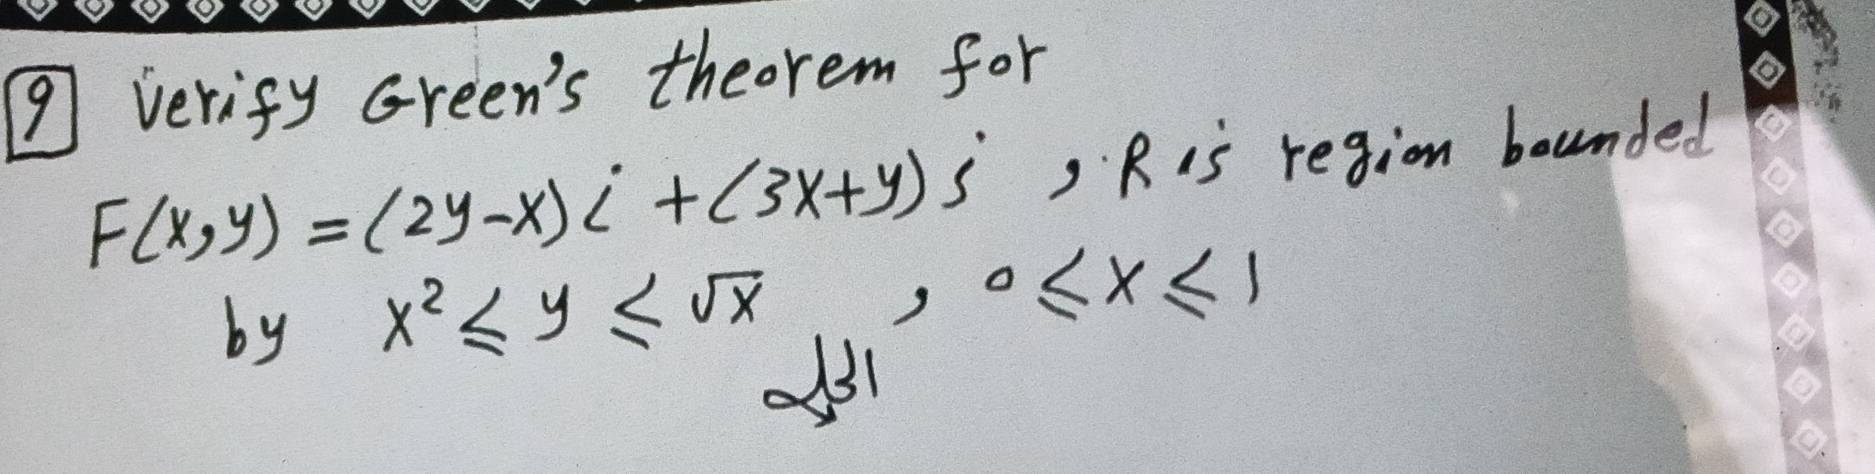 9 Verify Green's theorem for
F(x,y) = (2y-x)i + (3x+y)j , R is region bounded
by x² ≤ y ≤ √x , 0 ≤ x ≤ 1
الحل